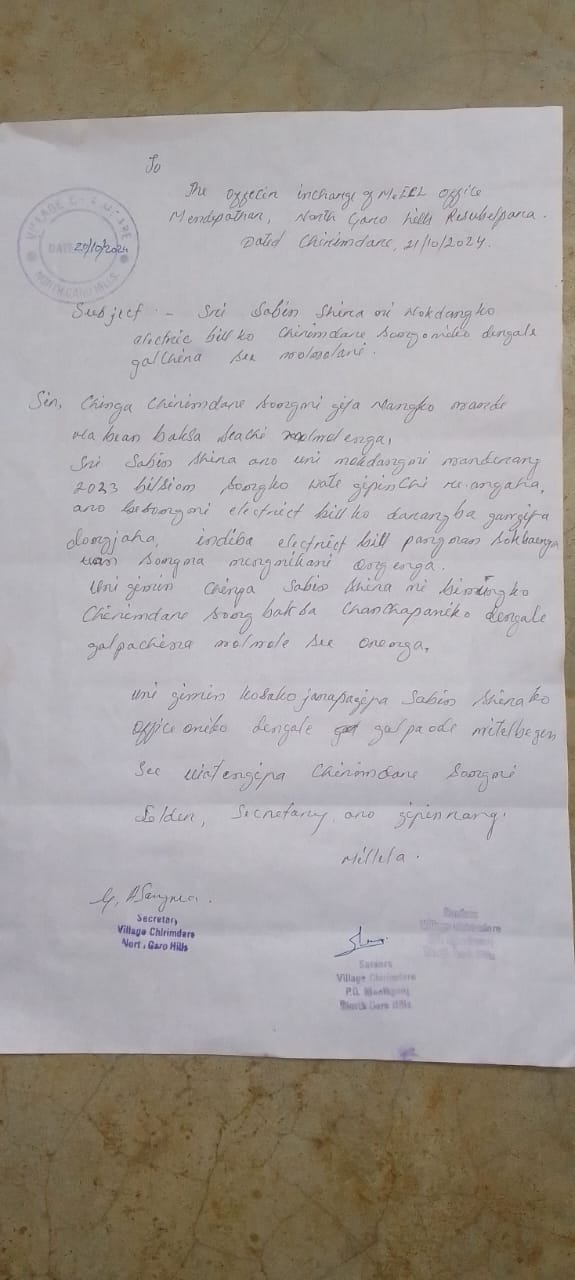 To
The Officer incharge of MeECL office
Mendipathar, North Garo hills Resubelpara.
Dated Chirimdare, 21/10/2024.
VILLAGE
DATE 20/10/2024
NORTH GARO HILLS
Subject :- Sri Sabin Shira ni Nokdangko
electric bill ko Chirimdare Songoniko dengale
galchina see molmolani.
Sir, Chinga Chirimdare songni gipa mande
baksa molmolenga,
Sri Sabin Shira aro uni nokdangni manderang
2023 bilsion songko wate gipinchi re.angaha,
aro bisongni electrict bill ko darangba gamgipa
dongjaha, indiba electrict bill pangnan sokbaenga
songna ong.enga.
Uni gimin Chinga Sabin Shira ni
Chirimdare Song baksa Chanchapaniko dengale
galpachina molmole see on.enga,
Uni gimin kosako janapagipa Sabin Shira ko
office oniko dengale galpaode mitelbegen
See watengipa Chirimdare Songni
Solder, Secretary aro gipinrang.
Mittela.
G. A Sangma.
Secretary
Village Chirimdare
Nort. Garo Hills
Village Chirimdare
P.O.
North Garo Hills
Village Chirimdare